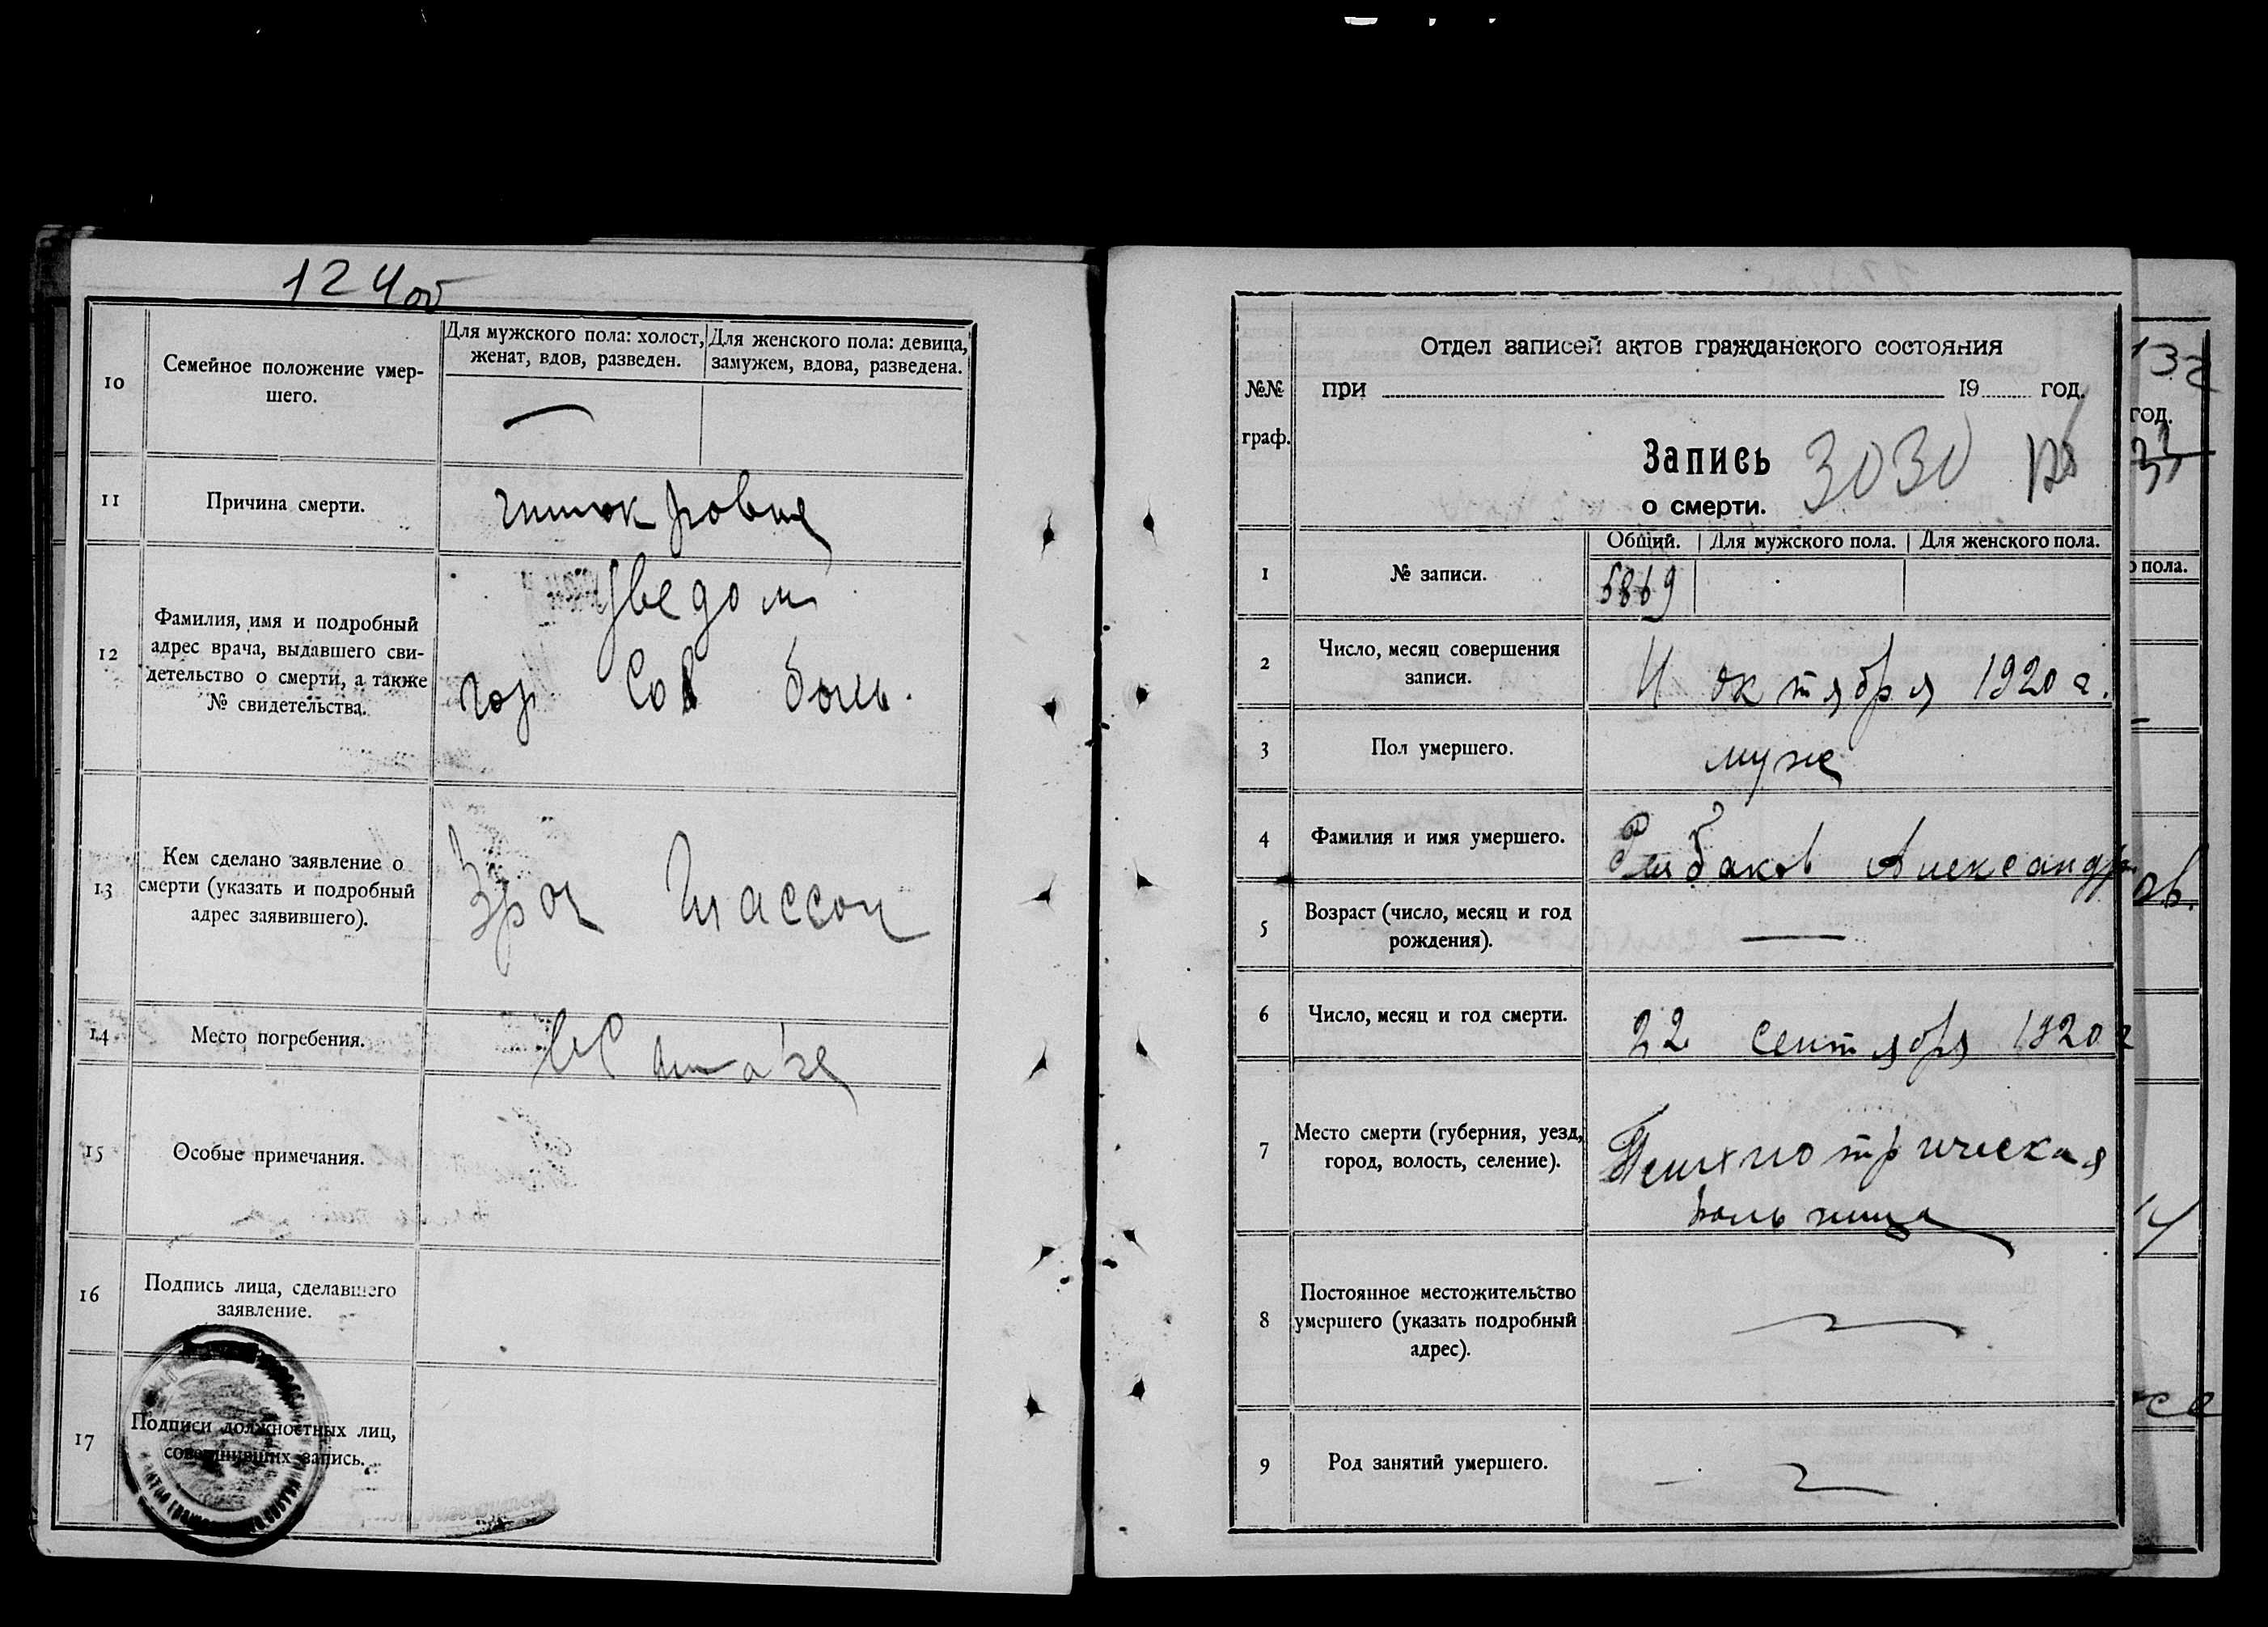 124об
10
Семейное положение умер-
шего.
Для мужского пола: холост,
женат, вдов, разведен.
Для женского пола: девица,
замужем, вдова, разведена.
11
Причина смерти.
12
Фамилия, имя и подробный
адрес врача, выдавшего сви-
детельство о смерти, а также
№ свидетельства.
уведом
гор Сов боль.
13
Кем сделано заявление о
смерти (указать и подробный
адрес заявившего).
14
Место погребения.
15
Особые примечания.
16
Подпись лица, сделавшего
заявление.
17
Подписи должностных лиц,
совершивших запись.
№№
граф.
Отдел записей актов гражданского состояния
при 19 год.
Запись 3030
о смерти.
Общий. Для мужского пола. Для женского пола.
1
№ записи.
5869
2
Число, месяц совершения
записи.
октября 1920 г.
3
Пол умершего.
муж
4
Фамилия и имя умершего.
Рыбаков Александр
5
Возраст (число, месяц и год
рождения).
6
Число, месяц и год смерти.
22 сентября 1920 г
7
Место смерти (губерния, уезд,
город, волость, селение).
Психиотрическая
больница
8
Постоянное местожительство
умершего (указать подробный
адрес).
9
Род занятий умершего.
132
год.
33
о пола.
ов.